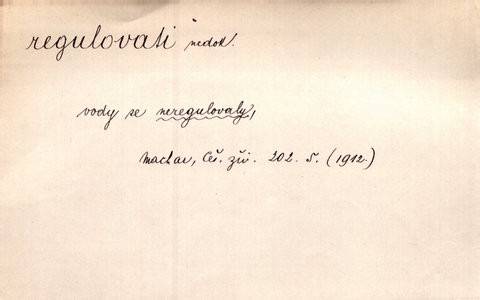 regulovati nedok.
vody se neregulovaly,
Machar, Čes. živ. 202. 5. (1912.)